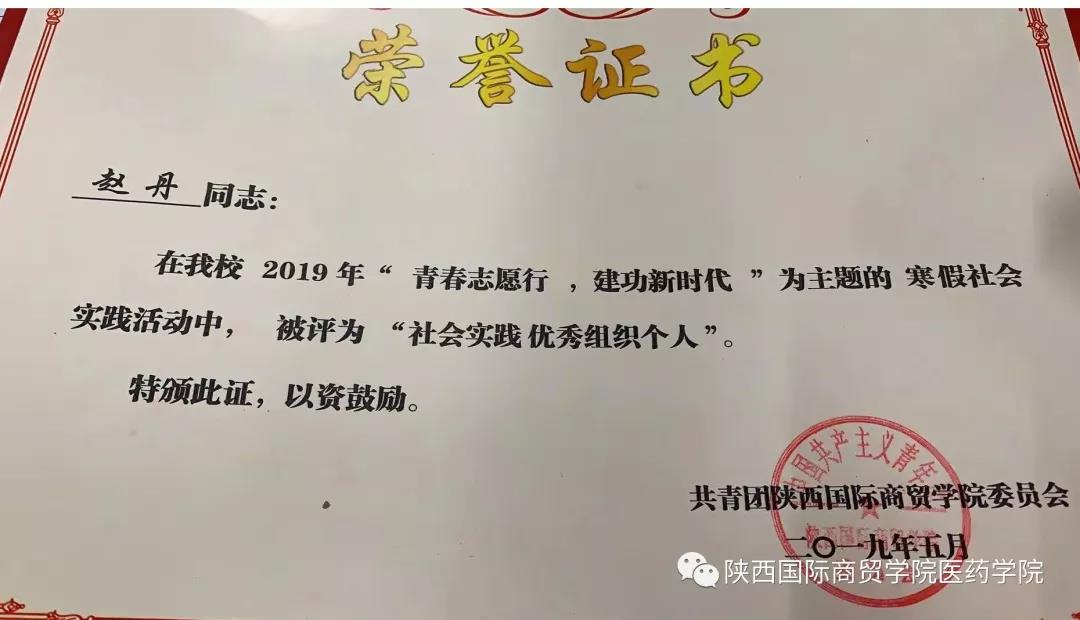 荣誉证书
赵丹 同志：
在我校 2019 年“ 青春志愿行 ，建功新时代 ”为主题的 寒假社会
实践活动中， 被评为 “社会实践 优秀组织个人”。
特颁此证，以资鼓励。
中国共产主义青年
共青团陕西国际商贸学院委员会
二〇一九年五月
陕西国际商贸学院医药学院